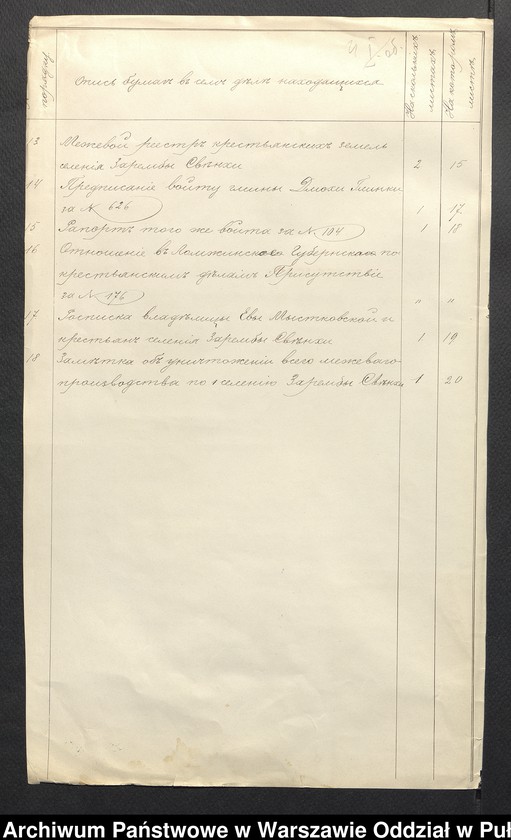 Опись бумагъ въ семъ дѣлѣ находящихся
На сколькихъ листахъ
На которомъ листѣ
13 Межевой реестръ крестьянскихъ земель
селенія Зарембы Свѣнхи 2 15
14 Предписаніе войту гмины Дмохи Глинки
за № 626 1 17
15 Рапортъ того же войта за № 194 1 18
16 Отношеніе въ Ломжинское Губернское по
крестьянскимъ дѣламъ Присутствіе
за № 176 " "
17 Росписка владѣлицы Евы Мыстковской и
крестьянъ селенія Зарембы Свѣнхи 1 19
18 Замѣтка объ уничтоженіи всего межеваго
производства по селенію Зарембы Свѣнхи 1 20
Archiwum Państwowe w Warszawie Oddział w Puł